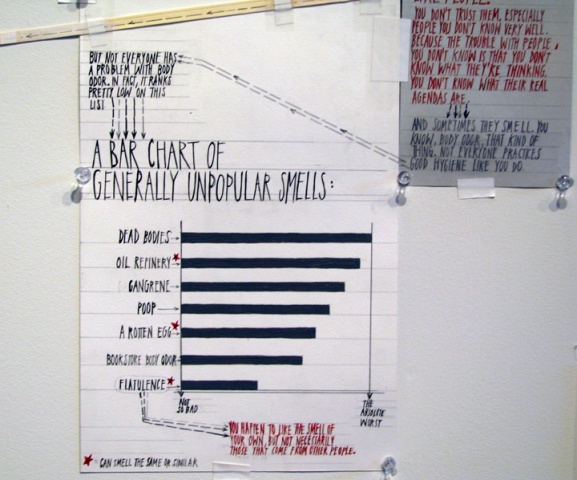 YOU DON'T TRUST THEM, ESPECIALLY
PEOPLE YOU DON'T KNOW VERY WELL.
BECAUSE THE TROUBLE WITH PEOPLE
YOU DON'T KNOW IS THAT YOU DON'T
KNOW WHAT THEY'RE THINKING.
YOU DON'T KNOW WHAT THEIR REAL
AGENDAS ARE.
AND SOMETIMES THEY SMELL. YOU
KNOW, BODY ODOR, THAT KIND OF
THING. NOT EVERYONE PRACTICES
GOOD HYGIENE LIKE YOU DO.
BUT NOT EVERYONE HAS
A PROBLEM WITH BODY
ODOR. IN FACT, IT RANKS
PRETTY LOW ON THIS
LIST
A BAR CHART OF
GENERALLY UNPOPULAR SMELLS:
DEAD BODIES
OIL REFINERY
GANGRENE
POOP
A ROTTEN EGG
BOOKSTORE BODY ODOR
FLATULENCE
NOT
SO BAD
THE
ABSOLUTE
WORST
YOU HAPPEN TO LIKE THE SMELL OF
YOUR OWN, BUT NOT NECESSARILY
THOSE THAT COME FROM OTHER PEOPLE.
★ = CAN SMELL THE SAME OR SIMILAR